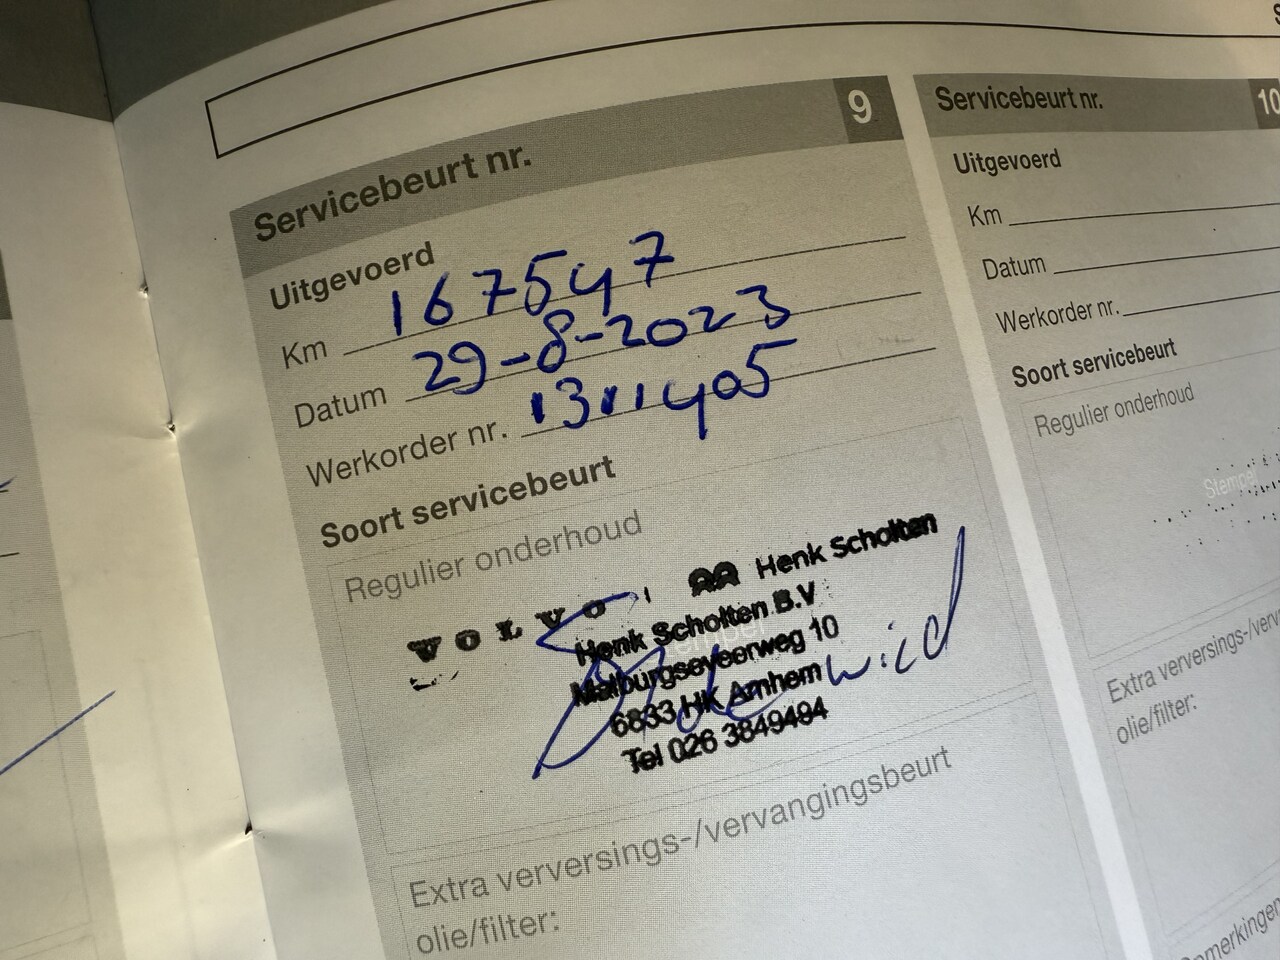 Servicebeurt nr. 9
Uitgevoerd
Km 167547
Datum 29-8-2023
Werkorder nr. 1311405
Soort servicebeurt
Regulier onderhoud
VOLVO Henk Scholten
Henk Scholten B.V
Malburgseveerweg 10
6833 HK Arnhem
Tel 026 3849494
Extra verversings-/vervangingsbeurt
olie/filter:
Servicebeurt nr. 10
Uitgevoerd
Km
Datum
Werkorder nr.
Soort servicebeurt
Regulier onderhoud
Stempel
Extra verversings-/verv
olie/filter: